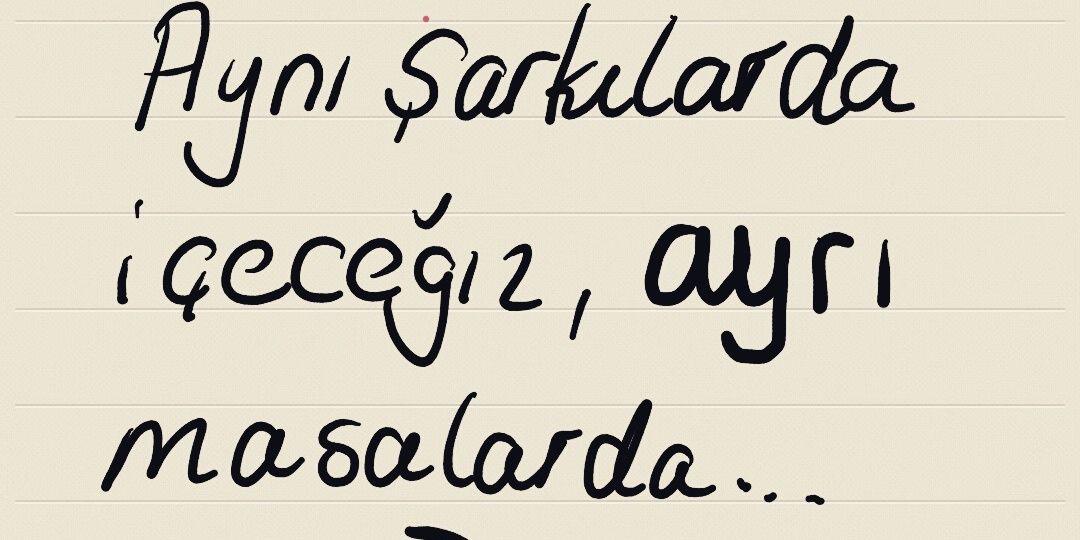 Aynı Şarkılarda
içeceğız, ayrı
masalarda...